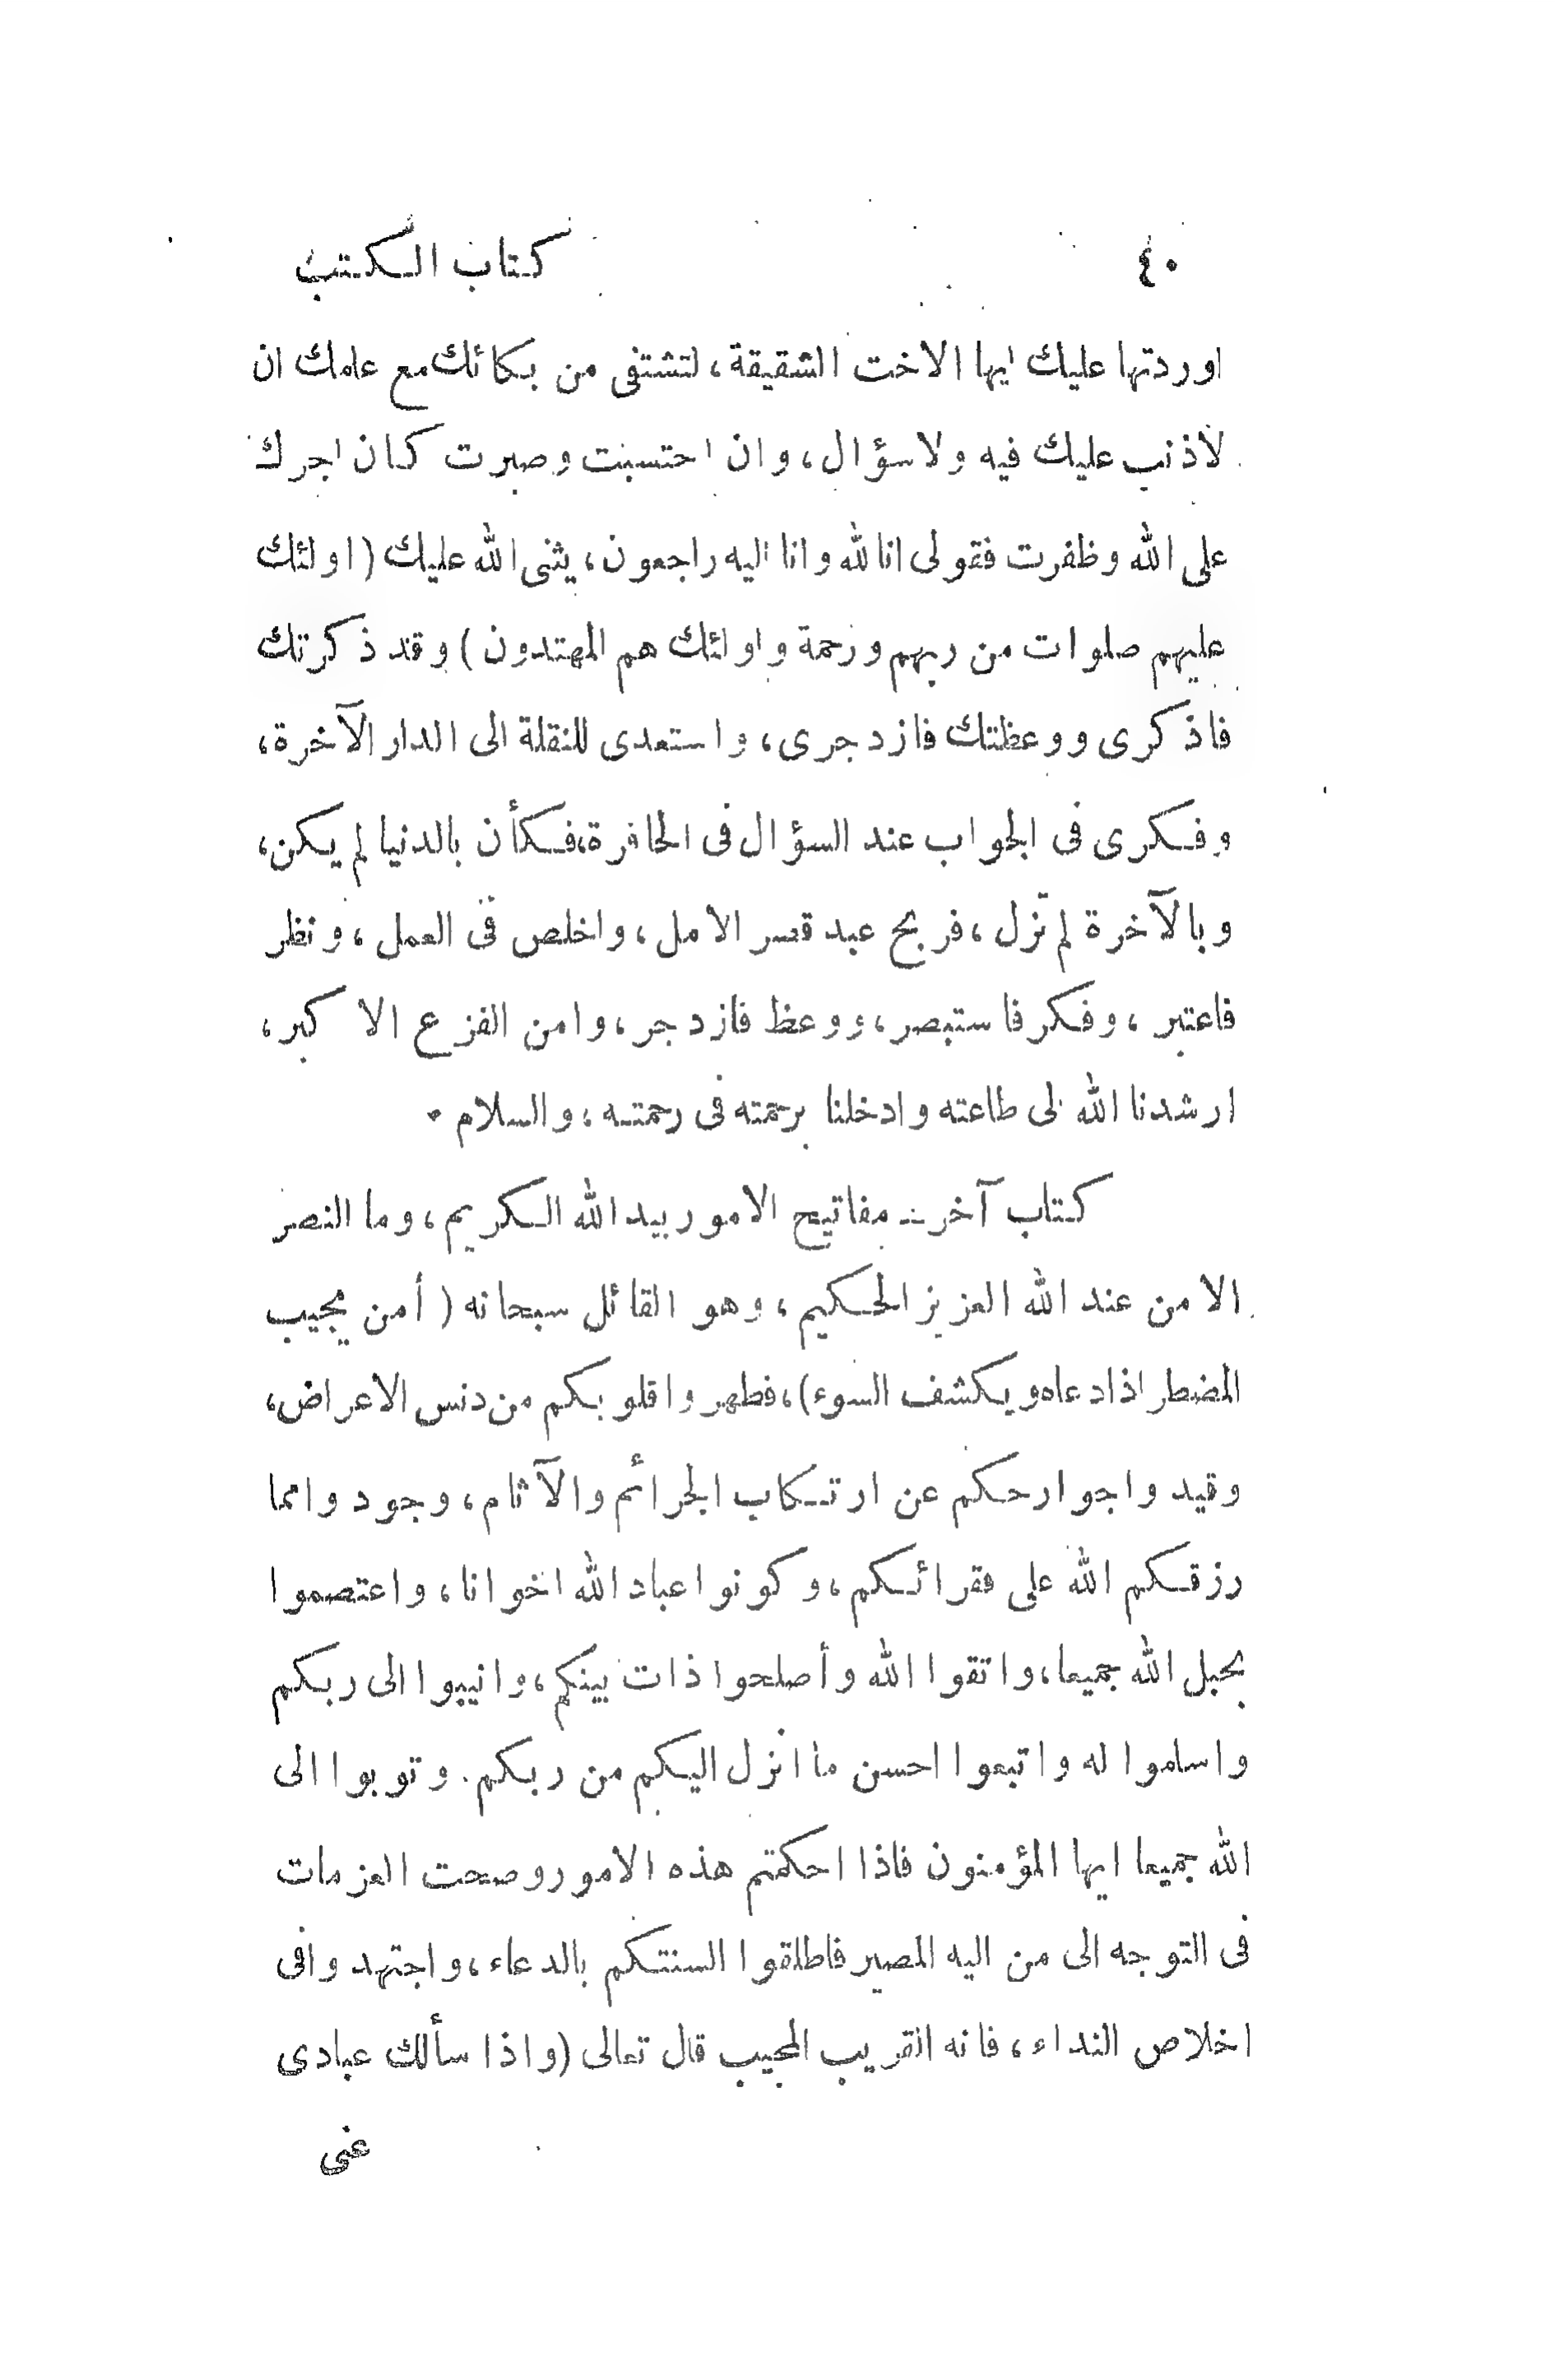 ٤٠ كتاب الكتب
اوردتها عليك ايها الاخت الشقيقة، لتشتفى من بكائك مع علمك ان
لاذنب عليك فيه ولاسؤال، وان احتسبت وصبرت كان اجرك
على الله وظفرت فقولى انالله وانا اليه راجعون، يثنى الله عليك (اولئك
عليهم صلوات من ربهم ورحمة واولئك هم المهتدون) وقد ذكرتك
فاذكرى ووعظتك فازدجرى، واستعدى للنقلة الى الدار الآخرة،
وفكرى فى الجواب عند السؤال فى الحافرة، فكأن بالدنيا لم يكن،
وبالآخرة لم تزل، فربح عبد قصر الامل، واخلص فى العمل، ونظر
فاعتبر، وفكر فاستبصر، ووعظ فازدجر، وامن الفزع الاكبر،
ارشدنا الله الى طاعته وادخلنا برحمته فى رحمته، والسلام •
كتاب آخر ـ مفاتيح الامور بيد الله الكريم، وما النصر
الا من عند الله العزيز الحكيم، وهو القائل سبحانه (أمن يجيب
المضطر اذا دعاه ويكشف السوء)، فطهروا قلوبكم من دنس الاعراض،
وقيدوا جوارحكم عن ارتكاب الجرائم والآثام، وجودوا مما
رزقكم الله على فقرائكم، وكونوا عباد الله اخوانا، واعتصموا
بحبل الله جميعا، واتقوا الله وأصلحوا ذات بينكم، وانيبوا الى ربكم
واسلموا له واتبعوا احسن ما انزل اليكم من ربكم. وتوبوا الى
الله جميعا ايها المؤمنون فاذا احكمتم هذه الامور وصحت العزمات
فى التوجه الى من اليه المصير فاطلقوا السنتكم بالدعاء، واجتهدوا فى
اخلاص النداء، فانه القريب المجيب قال تعالى (واذا سألك عبادى
عنى